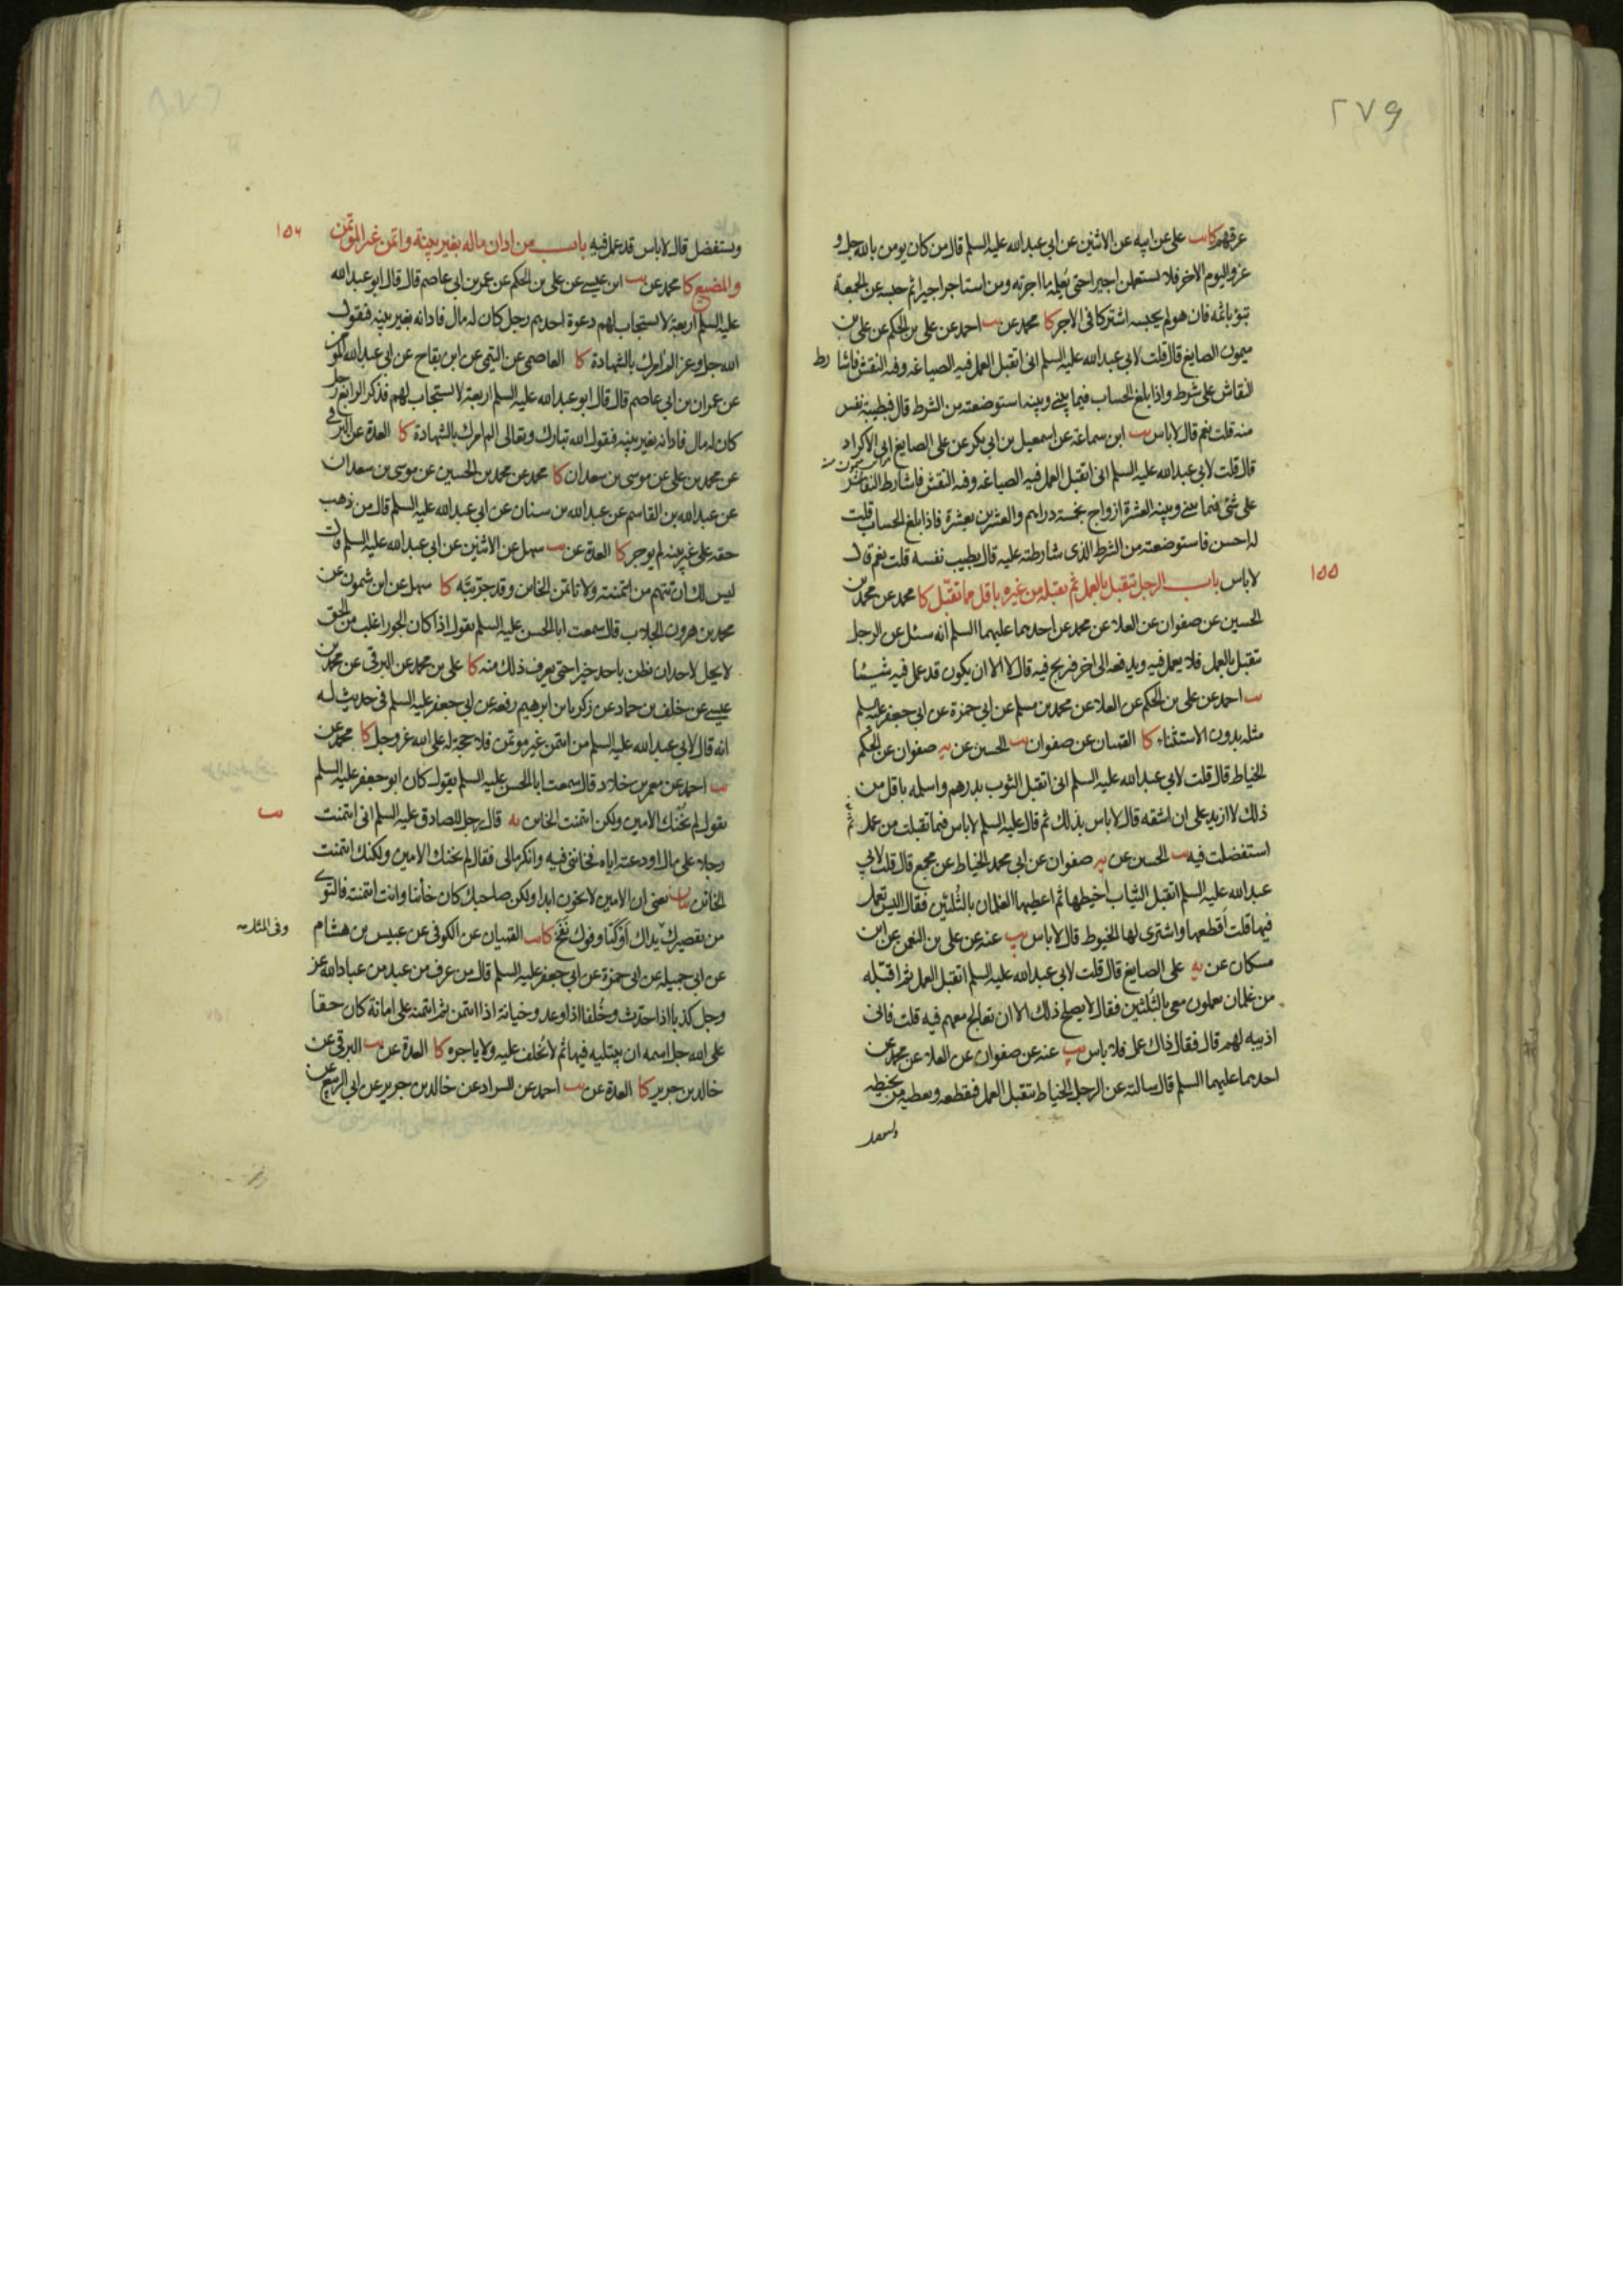 ٢٧٩
عرقهم كا يب علي عن ابيه عن الاثنين عن ابي عبدالله عليه السلم قال من كان يومن بالله جل و
عز واليوم الاخر فلا يستعملن اجيرا حتى يعلمه ما اجرته ومن استاجر اجيرا ثم حبسه عن الجمعة
تبوء باثمه فان هو لم يحبسه اشتركا في الاجر كا محمد عن يب احمد عن علي بن الحكم عن علي بن
ميمون الصايغ قال قلت لابي عبدالله عليه السلم اني اتقبل العمل فيه الصياغه وفيه النقش فاشارط
النقاش على شرط واذا بلغ الحساب فيما بيني وبينه استوضعته من الشرط قال فبطيبة نفس
منه قلت نعم قال لاباس يب ابن سماعة عن اسمعيل بن ابي بكر عن علي الصايغ ابي الاكراد
قال قلت لابي عبدالله عليه السلم اني اتقبل العمل فيه الصياغه وفيه النقش فاشارط النقاش
على شئ فيما بيني وبينه العشرة ازواج بخمسة دراهم والعشرين بعشرة فاذا بلغ الحساب قلت
له احسن فاستوضعته من الشرط الذي شارطته عليه قال بطيب نفسه قلت نعم قال
لاباس باب الرجل يتقبل بالعمل ثم يقبله من غيره باقل مما تقبل كا محمد عن محمد بن
١٥٥
الحسين عن صفوان عن العلا عن محمد عن احدهما عليهما السلم انه سئل عن الرجل
يتقبل بالعمل فلا يعمل فيه ويدفعه الى اخر فربح فيه قال لا الا ان يكون قد عمل فيه شيئا
يب احمد عن علي بن الحكم عن العلا عن محمد بن مسلم عن ابي حمزة عن ابي جعفر عليه السلم
مثله بدون الاستثناء كا القميان عن صفوان يب الحسين عن يه صفوان عن الحكم
الخياط قال قلت لابي عبدالله عليه السلم اني اتقبل الثوب بدرهم واسلمه باقل من
ذلك لا ازيد على ان اشقه قال لاباس بذلك ثم قال عليه السلم لاباس فيما تقبلت من عمل ثم
استفضلت فيه يب الحسين عن يه صفوان عن ابي محمد الخياط عن مجمع قال قلت لابي
عبدالله عليه السلم اتقبل الثياب اخيطها ثم اعطيها الغلمان بالثلثين فقال اليس تعمل
فيها قلت اقطعها واشتري لها الخيوط قال لاباس يب عنه عن علي بن النعمن عن ابن
مسكان عن يه علي الصايغ قال قلت لابي عبدالله عليه السلم اتقبل العمل ثم اقبله
من غلمان يعملون معي بالثلثين فقال لا يصلح ذلك الا ان تعالج معهم فيه قلت فاني
اذيبه لهم قال فقال ذاك عمل فلا باس يب عنه عن صفوان عن العلا عن محمد عن
احدهما عليهما السلم قال سالته عن الرجل الخياط يتقبل العمل فيقطعه ويعطيه من يخيطه
ويستفضل
ويستفضل قال لاباس قد عمل فيه باب من ادان ماله بغير بينة وائتمن غير المؤتمن
١٥٦
والمضيع كا محمد عن يب ابن عيسى عن علي بن الحكم عن عمر بن ابي عاصم قال قال ابو عبدالله
عليه السلم اربعة لا يستجاب لهم دعوة احدهم رجل كان له مال فادانه بغير بينه فيقول
الله جل وعز الم امرك بالشهادة كا العاصمي عن التيمي عن ابن بقاح عن ابي عبدالله المؤمن
عن عمران بن ابي عاصم قال قال ابو عبدالله عليه السلم اربعة لا يستجاب لهم فذكر الرابع رجل
كان له مال فادانه بغير بينه فيقول الله تبارك وتعالى الم امرك بالشهادة كا العدة عن البرقي
عن محمد بن علي عن موسى بن سعدان كا محمد عن محمد بن الحسين عن موسى بن سعدان
عن عبدالله بن القاسم عن عبدالله بن سنان عن ابي عبدالله عليه السلم قال من ذهب
حقه على غير بينه لم يوجر كا العدة عن يب سهل عن الاثنين عن ابي عبدالله عليه السلم قال
ليس لك ان تتهم من ائتمنته ولا تاتمن الخاين وقد جربته كا سهل عن ابن شمون عن
محمد بن هرون الجلاب قال سمعت ابا الحسن عليه السلم يقول اذا كان الجور اغلب من الحق
لا يحل لاحد ان يظن باحد خيرا حتى يعرف ذلك منه كا علي بن محمد عن البرقي عن محمد بن
عيسى عن خلف بن حماد عن زكريا بن ابرهيم رفعه عن ابي جعفر عليه السلم في حديث له
انه قال لابي عبدالله عليه السلم من ائتمن غير موتمن فلا حجة له على الله عز وجل كا محمد عن
يب احمد عن معمر بن خلاد قال سمعت ابا الحسن عليه السلم يقول كان ابو جعفر عليه السلم
يقول لم يخنك الامين ولكن ائتمنت الخاين يه قال رجل للصادق عليه السلم اني ائتمنت
يب
رجلا على مال اودعته اياه فخانني فيه وانكر مالي فقال لم يخنك الامين ولكنك ائتمنت
الخاين بيان يعني ان الامين لا يخون ابدا ولكن صاحبك كان خائنا وانت ائتمنته فالتوى
من تقصيرك يداك اوكتا وفوك نفخ كا يب القميان عن الكوفي عن عبيس بن هشام
وفي المثل
عن ابي جميله عن ابي حمزة عن ابي جعفر عليه السلم قال من عرف من عبد من عباد الله عز
وجل كذبا اذا حدث وخلفا اذا وعد وخيانة اذا ائتمن ثم ائتمنه على امانة كان حقا
على الله جل اسمه ان يبتليه فيها ثم لا يخلف عليه ولا ياجره كا العدة عن يب البرقي عن
خالد بن جرير كا العدة عن يب احمد عن السراد عن خالد بن جرير عن ابي الربيع عن